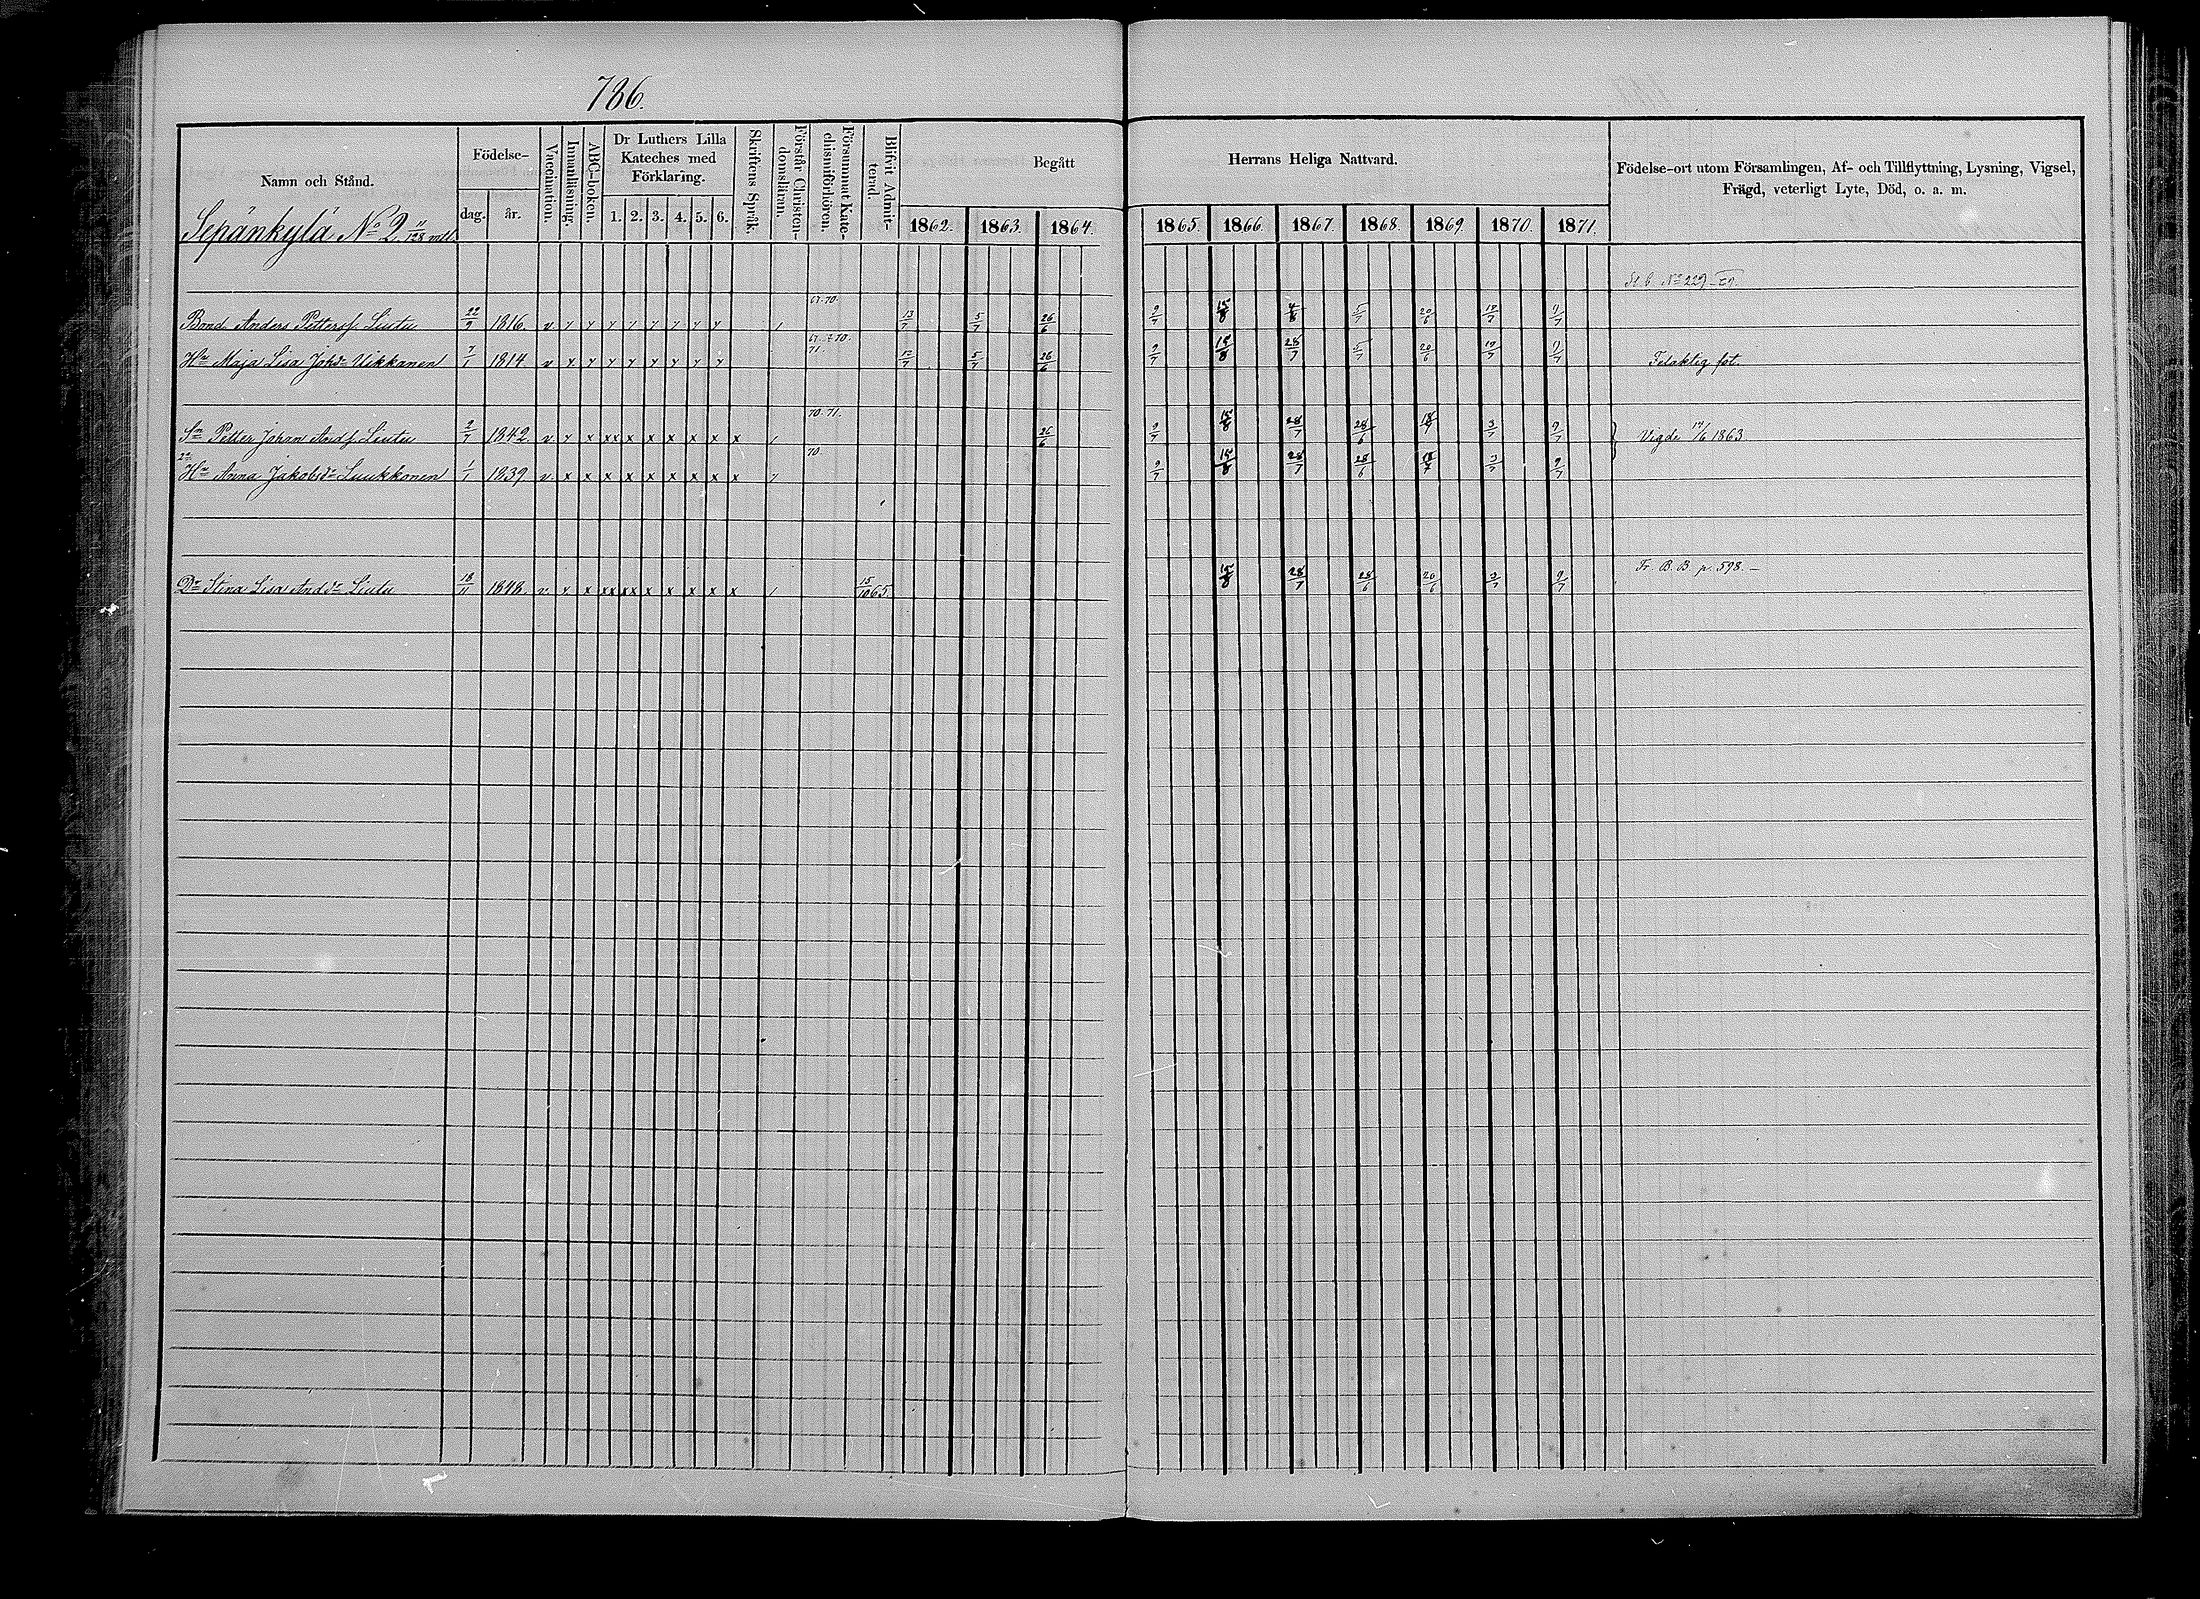 786.
Namn och Stånd.
Födelse-
dag.
år.
Vaccination.
Innanläsning.
ABC-boken.
Dr Luthers Lilla
Kateches med
Förklaring.
1. 2. 3. 4. 5. 6.
Skriftens Språk.
Förstår Christen-
domsläran.
Försummat Kate-
chismiförhören.
Blifvit Admit-
terad.
Begått Herrans Heliga Nattvard.
1862. 1863. 1864. 1865. 1866. 1867. 1868. 1869. 1870. 1871.
Födelse-ort utom Församlingen, Af- och Tillflyttning, Lysning, Vigsel,
Frägd, veterligt Lyte, Död, o. a. m.
Sepänkylä No 2
Bond Anders Pettersf. Liutu 22/9 1816. v y y y y y y y y 67.70. 13/7 5/7 26/6 9/7 15/8 4/8 5/7 20/6 17/7 9/7
Hu Maja Lisa Johdr Uikkanen 7/1 1814 v y y y y y y y y 71. 12/7 5/7 26/6 9/7 15/8 28/7 5/7 20/6 17/7 9/7 Felaktig fot.
Sn Petter Johan Andf. Liutu 2/7 1842. v. y x xx x x x x x x 70.71. 26/6 9/7 15/8 28/7 28/6 18/7 3/7 9/7 Vigde 1863
Hu Anna Jakobsdr Luukkonen 1/1 1839 v. x x x x x x x x x 70. 9/7 15/8 28/7 28/6 18/7 3/7 9/7
Dr Stina Lisa Andsdr Liutu 18/11 1848. v. y x xx xx x x x x x 15/10 65 15/8 28/7 28/6 20/6 3/7 9/7 Fr. B. B. p. 598. –